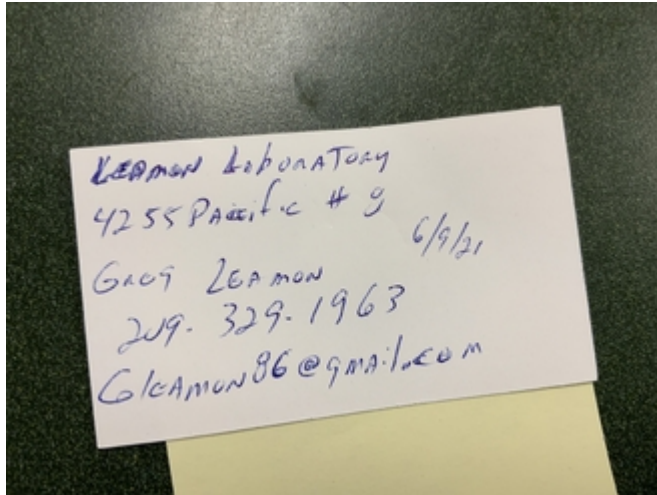 Leamon Laboratory
4255 Pacific # 9
6/9/21
Greg Leamon
209. 329. 1963
Gleamon86@gmail.com